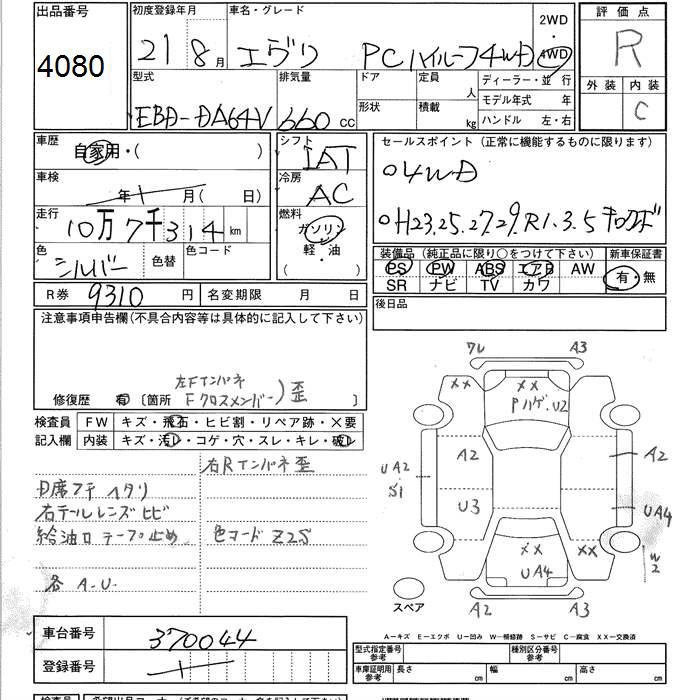 出品番号 初度登録年月 車名・グレード 2WD 評価点
4080 21年 8月 エヴリ PCハイルーフ4WD 4WD R
型式 排気量 ドア 定員 人 ディーラー・並行 外装 内装
EBD-DA64V 660cc 形状 積載 kg モデル年式 年 C
ハンドル 左・右
車歴 自家用・( ) シフト IAT セールスポイント(正常に機能するものに限ります)
車検 年 月( 日) 冷房 AC ○4WD
走行 10万7千314km 燃料 ガソリン 軽・油 ( ・ ) ○H23.25.27.29.R1.3.5キロクボ
色 シルバー 色替 色コード 装備品(純正品に限り○をつけて下さい) 新車保証書
PS PW ABS エアB AW 有・無
SR ナビ TV カワ
R券 9310円 名変期限 月 日 後日品
注意事項申告欄(不具合内容等は具体的に記入して下さい)
左Fインパネ
修復歴 有 [箇所 Fクロスメンバー)歪 ]
検査員 FW キズ・飛石・ヒビ割・リペア跡・×要
記入欄 内装 キズ・汚レ・コゲ・穴・スレ・キレ・破レ
右Rインパネ歪
内席フチ ヘタリ
右テールレンズヒビ
給油口テープ止め 色コード Z2S
各 A.U.
フレ A3
×× ××
PハゲU2
A2 A2
UA2
S1
U3 UA4
×× ××
UA4 W2
スペア A2 A3
A−キズ E−エクボ U−凹み W−補修跡 S−サビ C−腐食 XX−交換済
車台番号 370044
登録番号
型式指定番号 参考 種別区分番号 参考
車庫証明用 参考 長さ cm 幅 cm 高さ cm